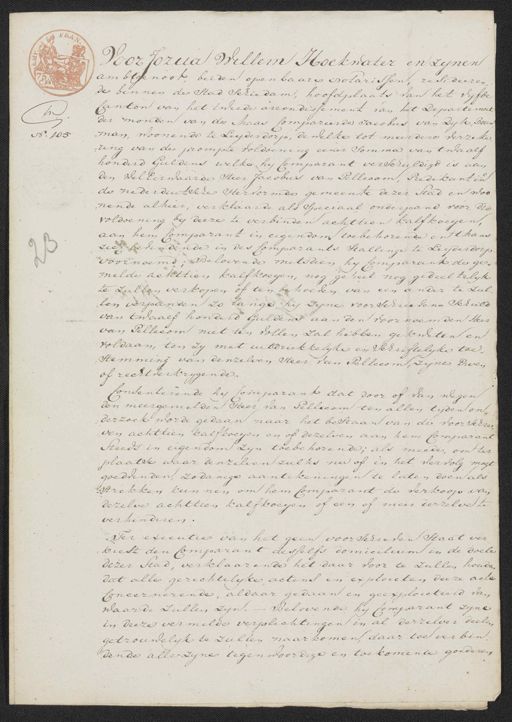 Voor Jozua Willem Hoekwater en Zynen
ambtgenoot, beiden openbaare Notarissen, resideren
de binnen de Stad Schiedam, hoofdplaats van het Vyfde
Canton van het tweede arrondissement van het Departement
der monden van de Maas Compareerde Jacobus van Dyk, Bouw
man, woonende te Leyderdorp, dewelke tot meerdere verzeke
ring van de prompte voldoening eener Somma van twaalf
honderd Guldens welke hy Comparant verschuldigd is aan
den WelEerwaarde Heer Jacobus van Pellecom, Predikant in
de nederduitsche Hervormde gemeente dezer Stad en woo
nende alhier, verklaarde als Speciaal onderpand voor die
voldoening by deeze te verbinden achttien kalfkoeyen,
aan hem Comparant in eigendom toebehorende en thans
zich bevindende in des Comparants Stallinge te Leyderdorp
voornoemd, Belovende mitsdien hy Comparant de ge
melde achttien kalfkoeyen, nog geheel nog gedeeltelyk
te zullen verkopen of ten behoeve van een ander te zul
len verpanden zo lange hy Zyne voorschrevene Schuld
van twaalf honderd Guldens aan den voornoemden Heer
van Pellecom niet ten vollen zal hebben gekweten en
voldaan, ten zy met uitdrukkelyke en Schriftelyke toe
Stemming van denzelven Heer van Pellecom, Zynen Erven
of recht verkrygende.
Consenteerende hy Comparant dat door of van wegen
den meergemelden Heer van Pellecom ten allen tyden on
derzoek worde gedaan naar het bestaan van de voorschreve
ven achttien kalfkoeyen en of dezelven aan hem Comparant
Steeds in eigendom zyn toebehorende; als mede, om ter
plaatse waar denzelven zulks nu of in het vervolg mogt
goedvinden, zodanige aantekeningen te laten doen als
Strekken kunnen om hem Comparant de verkoop van
dezelve achttien kalfkoeyen of een of meer derzelve te
verhinderen.
Ter executie van het geen voorschreven Staat ver
kiest den Comparant deszelfs domicilium in de doele
dezer Stad, verklaarende het daar voor te zullen houden
dat alle gerechtelyke actens en exploicten deeze acte
Concerneerende, aldaar gedaan en geexploicteerd van
waarde zullen zyn. — Belovende hy Comparant zyne
in deeze vermelde verplichtingen in al derzelver deelen
getrouwelyk te zullen naarkomen daar toe verbin
dende alle zyne tegenwoordige en toekomende goederen
No. 105
23